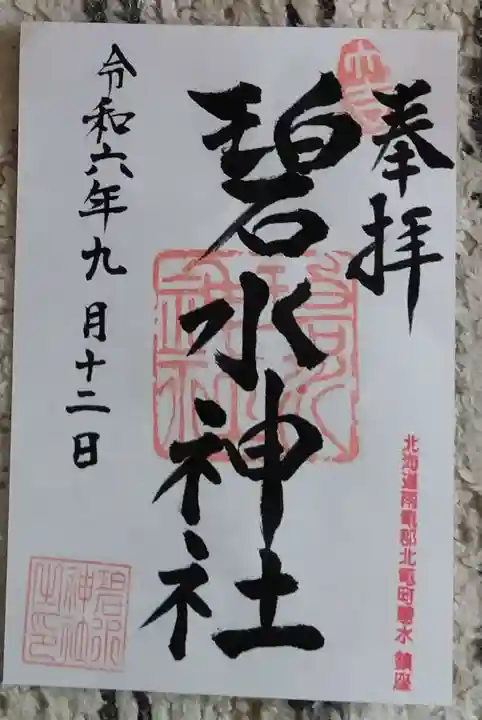 奉拝
碧水神社
令和六年九月十二日
北海道雨竜郡北竜町碧水 鎮座
碧水神社
碧水神社之印